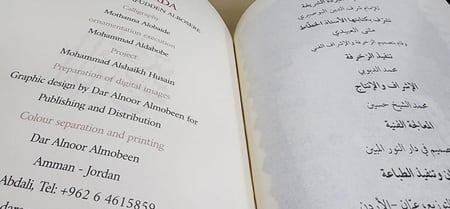 ADA
AFUDDEN ALBOSERE
Calligraphy
Mothanna Alobaide
ornamentation execution
Mohammad Aldabobe
Project
Mohammad Alshaikh Husain
Preparation of digital images
Graphic design by Dar Alnoor Almobeen for
Publishing and Distribution
Colour separation and printing
Dar Alnoor Almobeen
Amman - Jordan
Abdali, Tel: +962 6 4615859
البردة الشريفة
للإمام شرف الدين البوصيري
تشرف بكتابتها الأستاذ الخطاط
مثنى العبيدي
وقام بتصميم الزخرفة والإشراف الفني
تنفيذ الزخرفة
محمد الدبوبي
الإشراف والإنتاج
محمد الشيخ حسين
المعالجة الفنية
تصميم في دار النور المبين
وتنفيذ الطباعة
والتوزيع، عمّان - الأردن